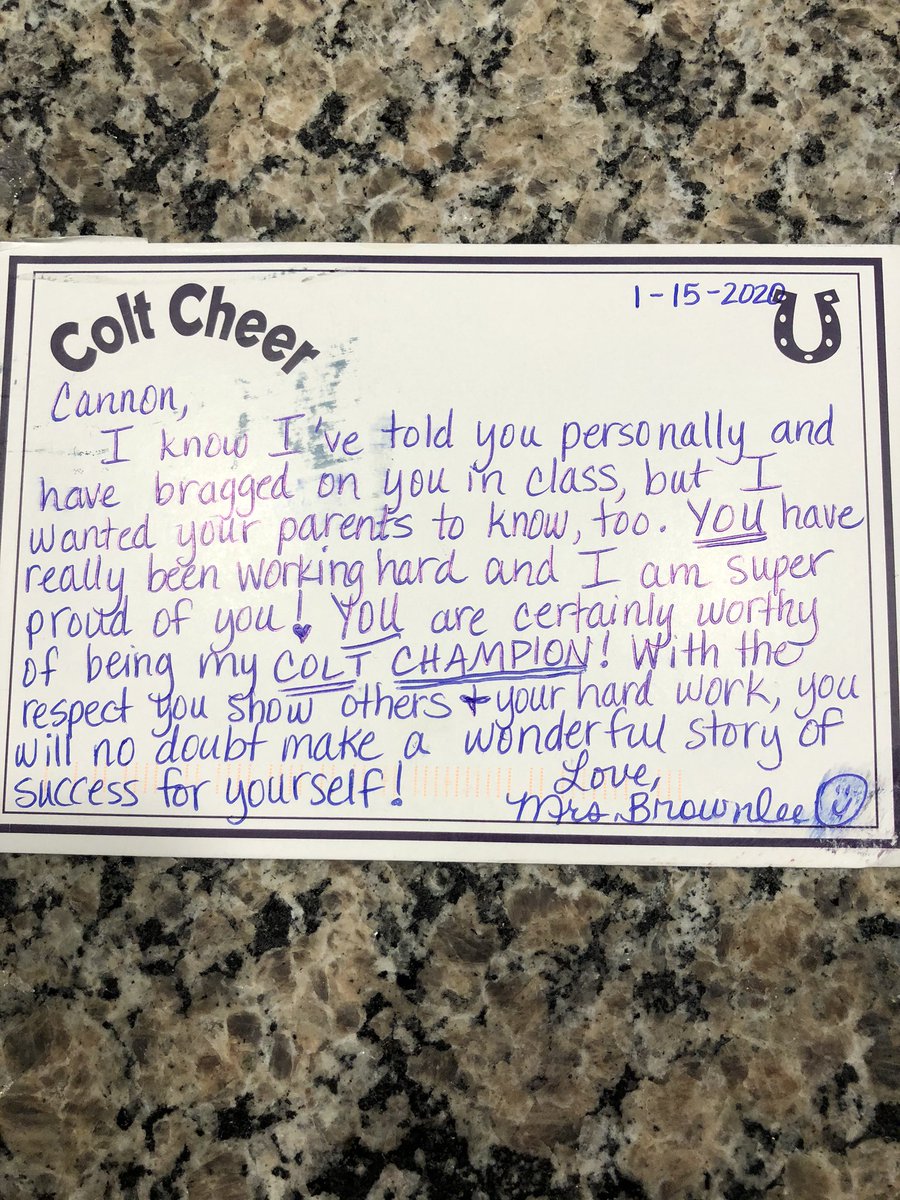 Colt Cheer
1-15-2020
Cannon,
I know I've told you personally and
have bragged on you in class, but I
wanted your parents to know, too. YOU have
really been working hard and I am super
proud of you! YOU are certainly worthy
of being my COLT CHAMPION! With the
respect you show others + your hard work, you
will no doubt make a wonderful story of
success for yourself!
Love,
Mrs. Brownlee